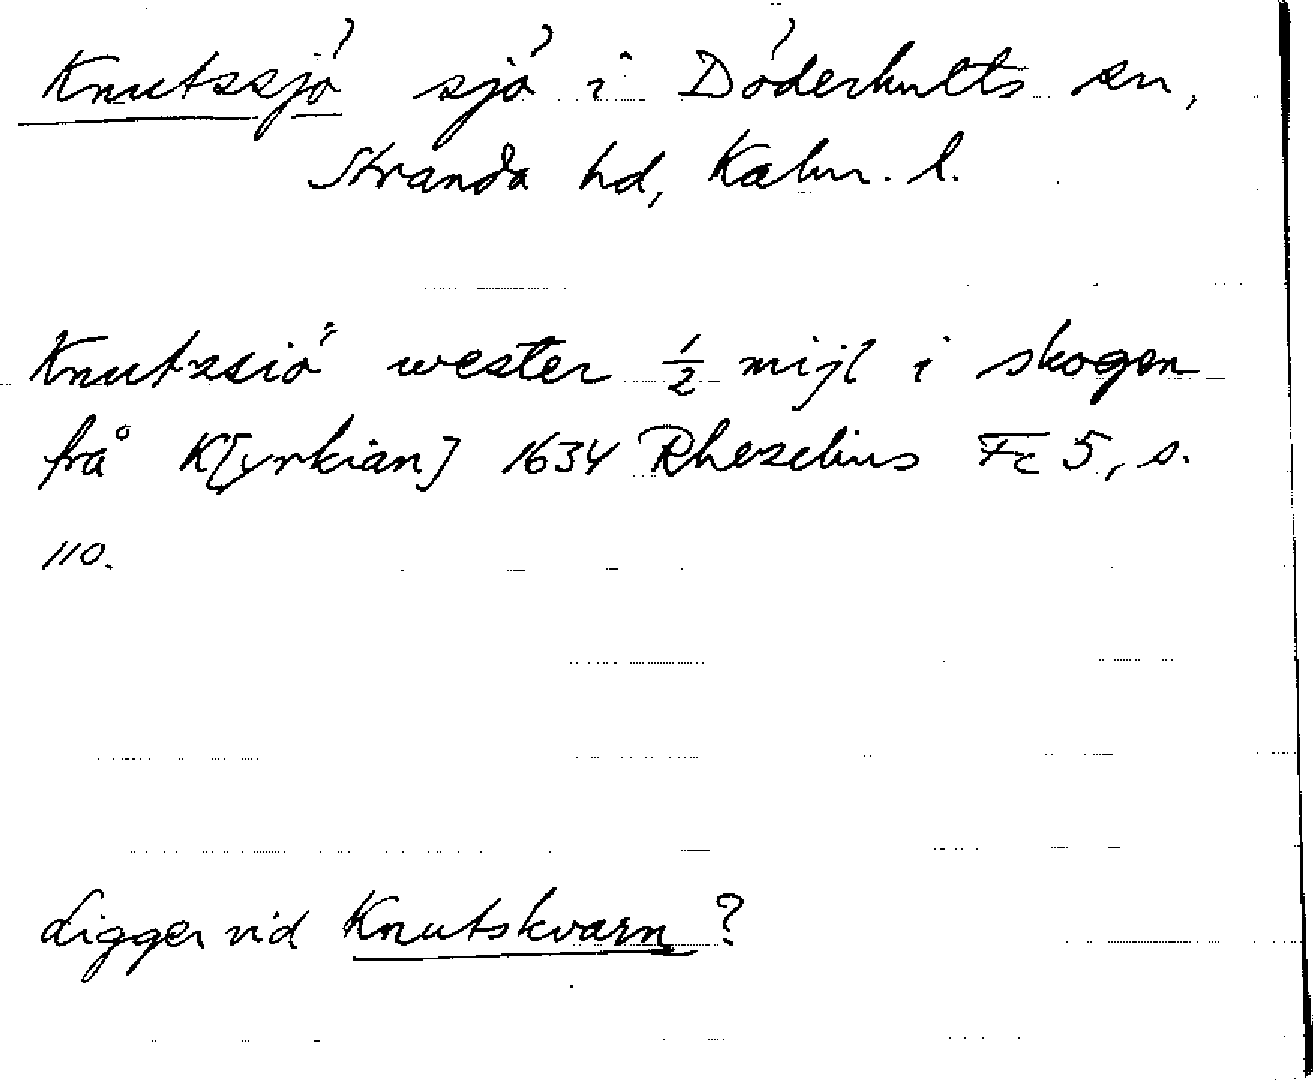 Knutssjö sjö i Döderhults sn,
Stranda hd, Kalm. l.
Knutzsiö wester 1/2 mijl i skogen
från K[yrkian] 1634 Rhezelius Fc 5, s.
110.
Ligger vid Knutskvarn?